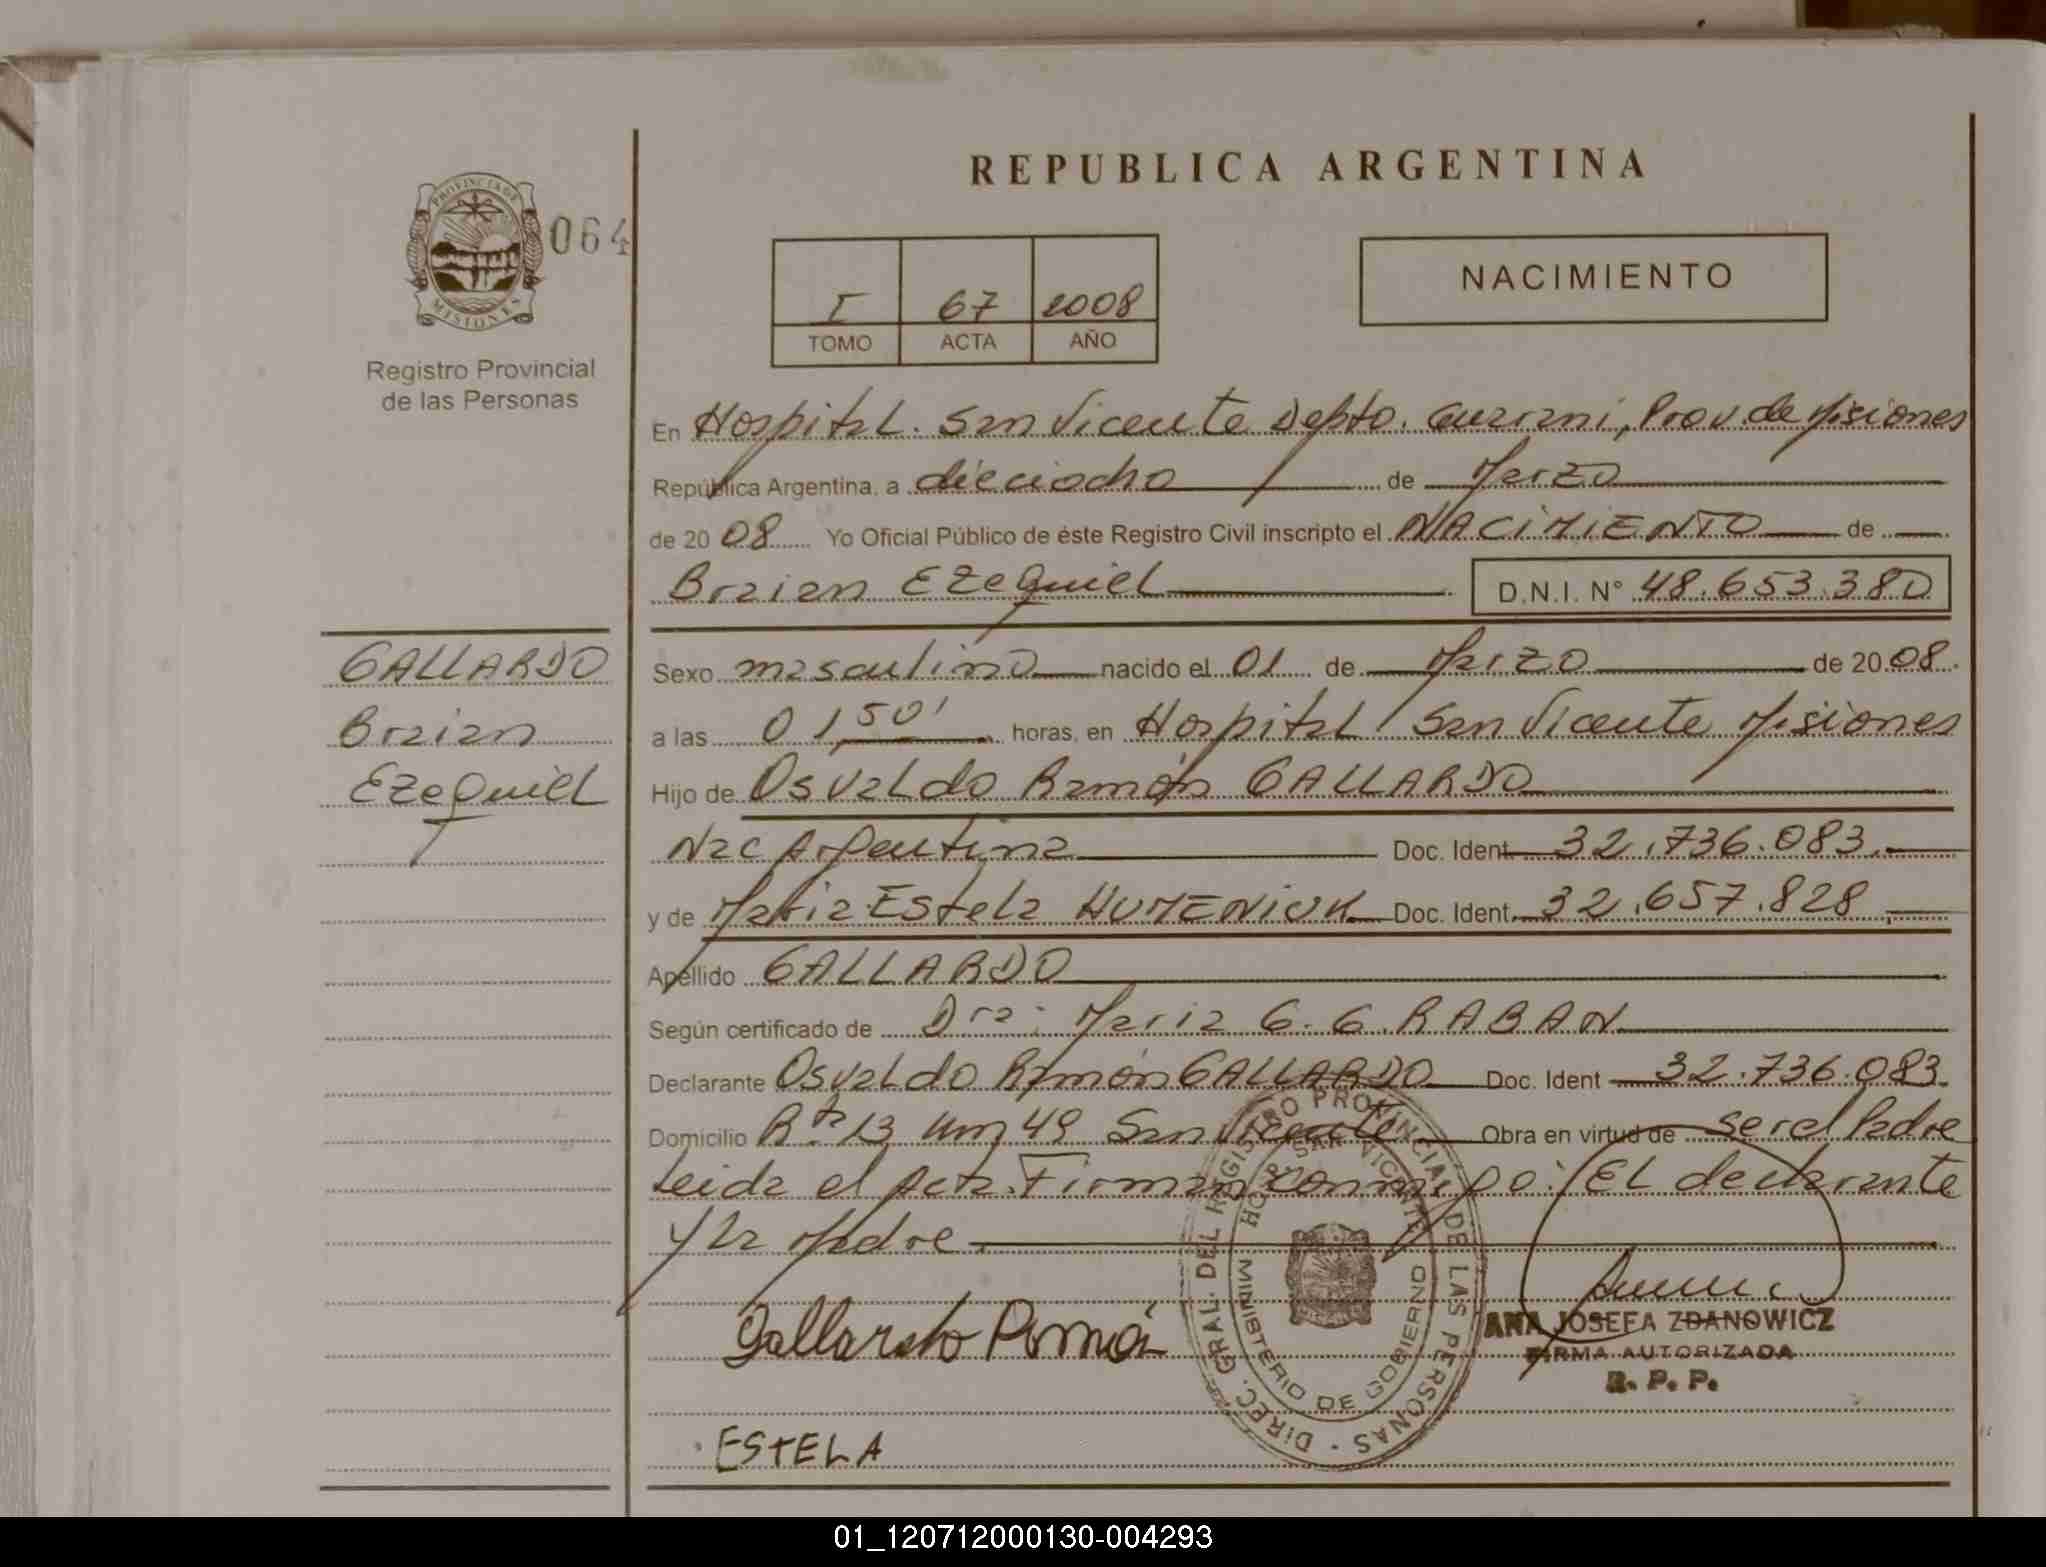 REPUBLICA ARGENTINA
PROVINCIA DE
MISIONES
064
Registro Provincial
de las Personas
I 67 2008
TOMO ACTA AÑO
NACIMIENTO
En Hospital. San Vicente Depto. Guarani, Prov. de Misiones
República Argentina, a dieciocho de Marzo
de 20 08 Yo Oficial Público de éste Registro Civil inscripto el NACIMIENTO de
Braian Ezequiel D.N.I. N° 48.653.380
GALLARDO
Braian
Ezequiel
Sexo masculino nacido el 01 de Marzo de 20 08
a las 01,50' horas, en Hospital San Vicente Misiones
Hijo de Osvaldo Ramón GALLARDO
Nac Argentina Doc. Ident 32.736.083.
y de Maria Estela HUMENIUK Doc. Ident. 32.657.828
Apellido GALLARDO
Según certificado de Dra: Maria G. G. RABAN
Declarante Osvaldo Ramón GALLARDO Doc. Ident 32.736.083
Domicilio Rta 13 Km 49 San Vicente Obra en virtud de ser el Padre
Leida el Acta. Firman conmigo: El declarante
y la Madre.
DIREC. GRAL. DEL REGISTRO PROVINCIAL DE LAS PERSONAS
HOSP. SAN VICENTE
MINISTERIO DE GOBIERNO
Gallardo Ramón
ANA JOSEFA ZDANOWICZ
FIRMA AUTORIZADA
R. P. P.
ESTELA
01_120712000130-004293